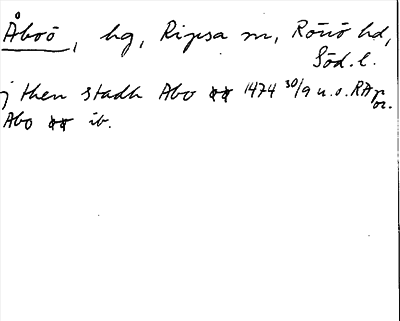 Åboö, hg, Ripsa sn, Rönö hd,
Söd. l.
j then stadh Abo ** 1474 30/9 u.o. RAp
or.
Abo ** ib.